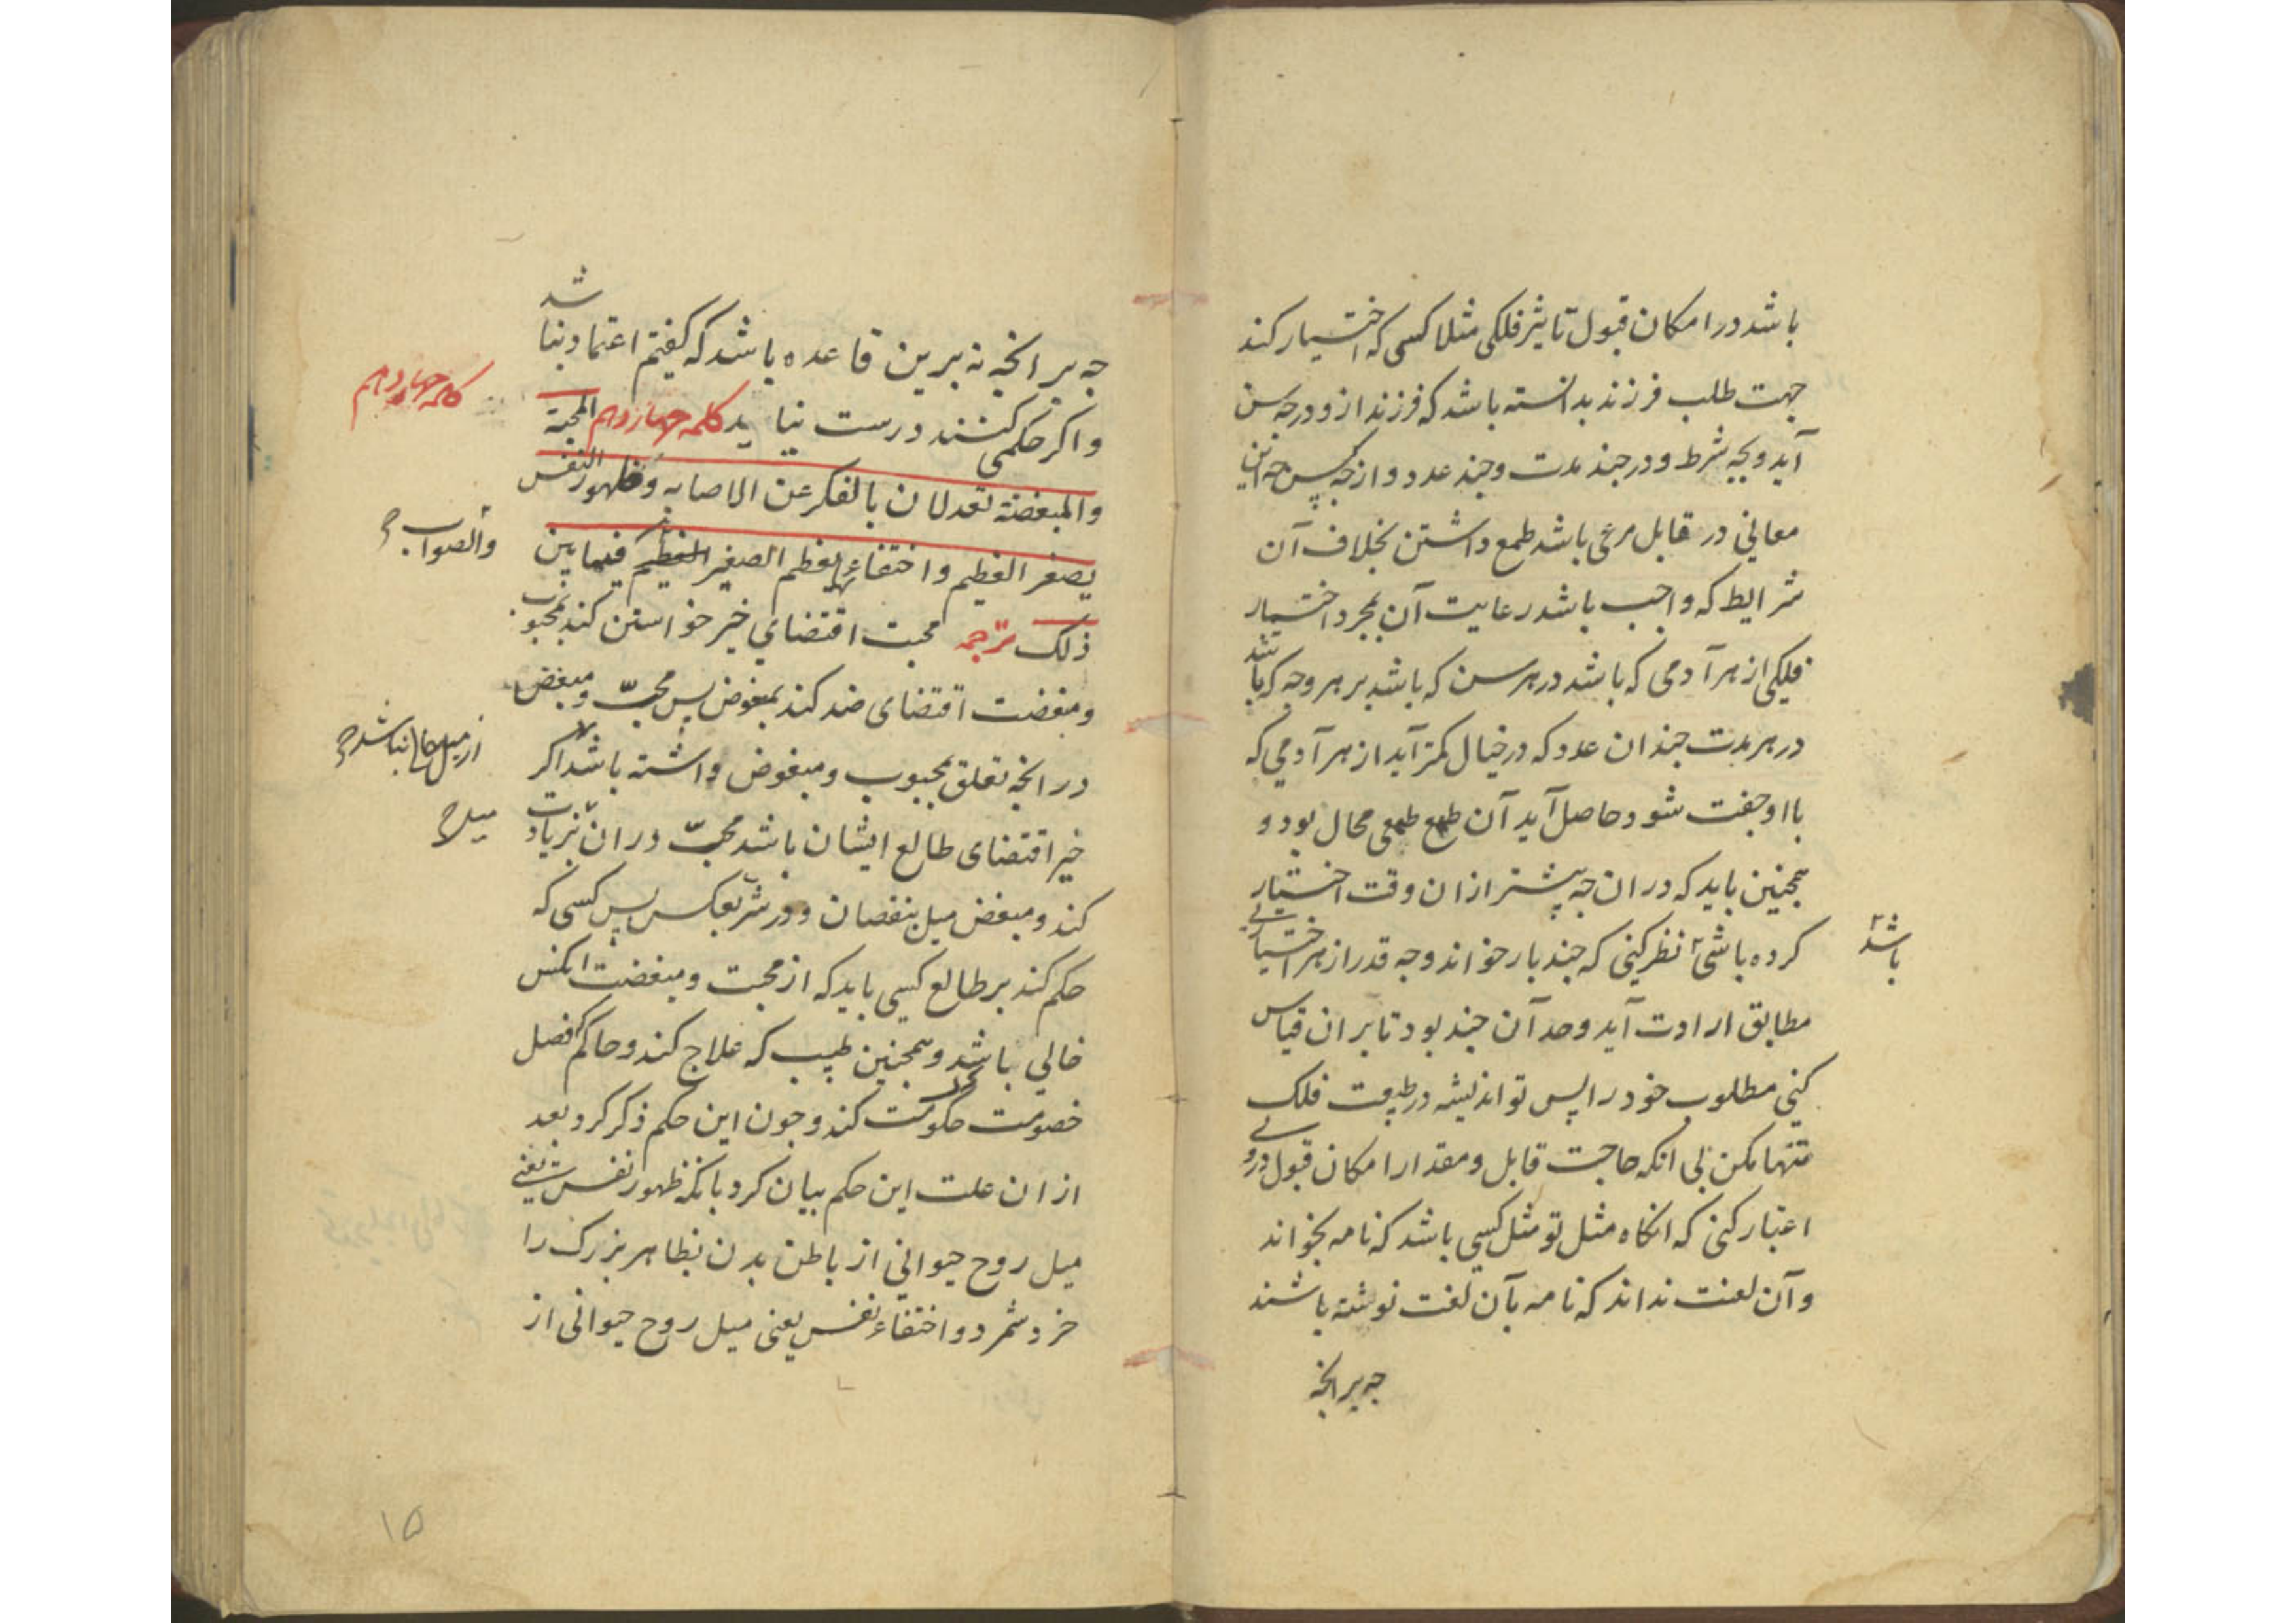 باشد در امکان قبول تاثیر فلکی مثلا کسی که اختیار کند
جهت طلب فرزند بدانسته باشد که فرزند از و در چه سن
آید و بچه شرط و در چند مدت و چند عدد و از چه
معانی در قابل مرعی باشد طمع داشتن بخلاف آن
شرایط که واجب باشد رعایت آن بمجرد اختیار
فلکی از هر آدمی که باشد در هر سن که باشد بر هر وجه که باشد
در هر مدت چندان عدد که در خیال کمتر آید از هر آدمی که
با او جفت شود حاصل آید آن طمع طمعی محال بود و
همچنین باید که در ان چه پیشتر ازان وقت اختیار
کرده باشی نظر کنی که چند بار خواند و چه قدر از هر اختیاری
باشد
مطابق ارادت آید و حد آن چند بود تا بر ان قیاس
کنی مطلوب خود را پس تو اندیشه در طبیعت فلک
تنها مکن بی انکه حاجت قابل و مقدار امکان قبول در وی
اعتبار کنی که انکاه مثل تو مثل کسی باشد که نامه بخواند
و آن لغت نداند که نامه بآن لغت نوشته باشند
چه بر انچه
چه بر انچه نه برین قاعده باشد که کفتیم اعتماد نباشد
و اکر حکمی کنند درست نیاید کلمه چهاردهم المحبة
کلمه چهاردهم
والمبغضة تعدلان بالفکر عن الاصابه وظهور النفس
یصغر العظیم واختفاءها یعظم الصغیر العظیم فیما بین
والصواب ح
ذلک ترجمه محبت اقتضای خیر خواستن کند بمحبوب
ومبغضت اقتضای ضد کند بمبغوض پس محبّ و مبغض
در انچه تعلق بمحبوب ومبغوض داشته باشد اکر
از میل خالی نباشد ح
خیر اقتضای طالع ایشان باشد محبّ دران بزیادت
میل ح
کند و مبغض میل بنقصان و در شرّ بعکس پس کسی که
حکم کند بر طالع کسی باید که از محبت و مبغضت انکس
خالی باشد و همچنین طبیب که علاج کند و حاکم که فصل
خصومت حکومت کند و چون این حکم ذکر کرد بعد
ازان علت این حکم بیان کرد بانکه ظهور نفس یعنی
میل روح حیوانی از باطن بدن بظاهر بزرک را
خرد شمرد و اختفاء نفس یعنی میل روح حیوانی از
۱۵